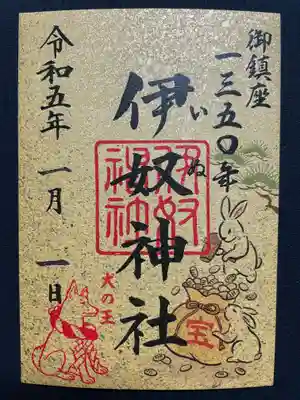 御鎮座
一三五〇年
伊奴神社
いぬ
伊奴神社
令和五年 一月 一日
犬の王
宝